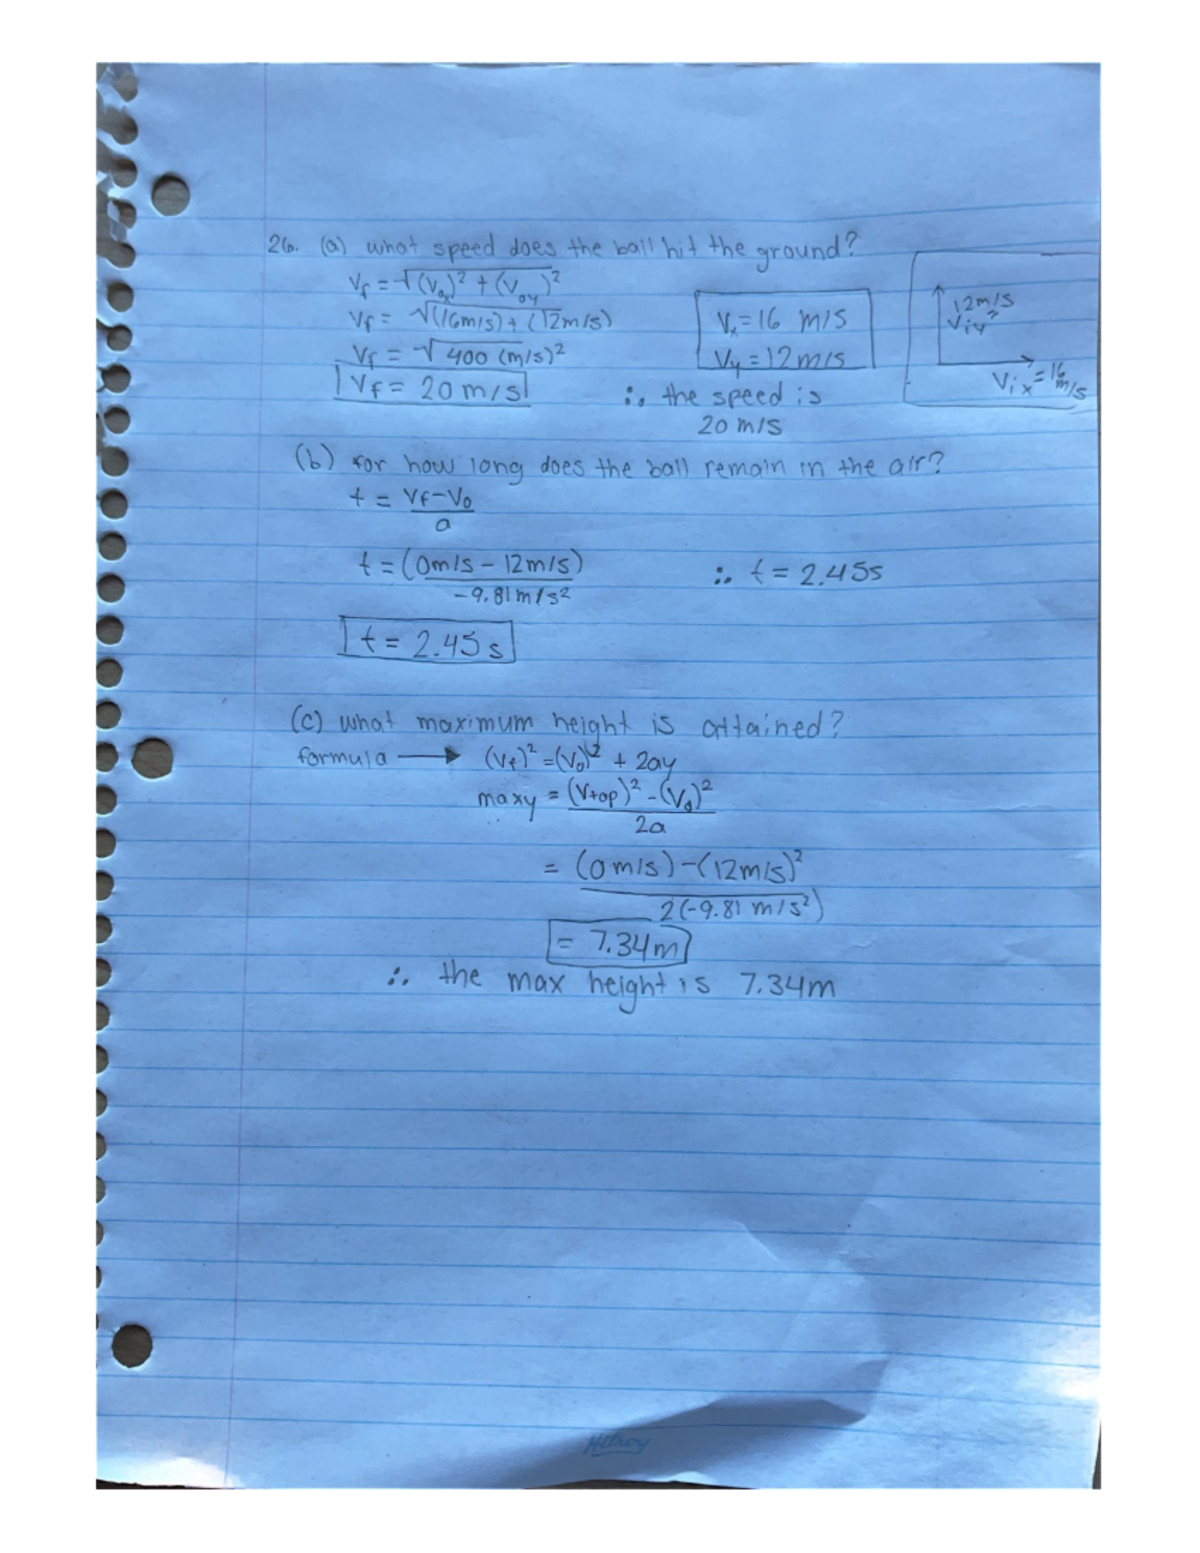 26. (a) what speed does the ball hit the ground?
Vf = √(Vox)² + (Voy)²
Vf = √(16m/s) + (12m/s)
Vf = √400 (m/s)²
Vf = 20 m/s
Vx = 16 m/s
Vy = 12 m/s
∴ the speed is
20 m/s
12m/s
Viy
Vix = 16 m/s
(b) for how long does the ball remain in the air?
t = Vf-Vo
a
t = (0m/s - 12m/s)
-9.81m/s²
t = 2.45 s
∴ t = 2.45s
(c) what maximum height is attained?
formula → (Vf)² = (Vo)² + 2ay
maxy = (Vtop)² - (Vo)²
2a
= (0 m/s) - (12m/s)²
2(-9.81 m/s²)
= 7.34m
∴ the max height is 7.34m
Hilroy